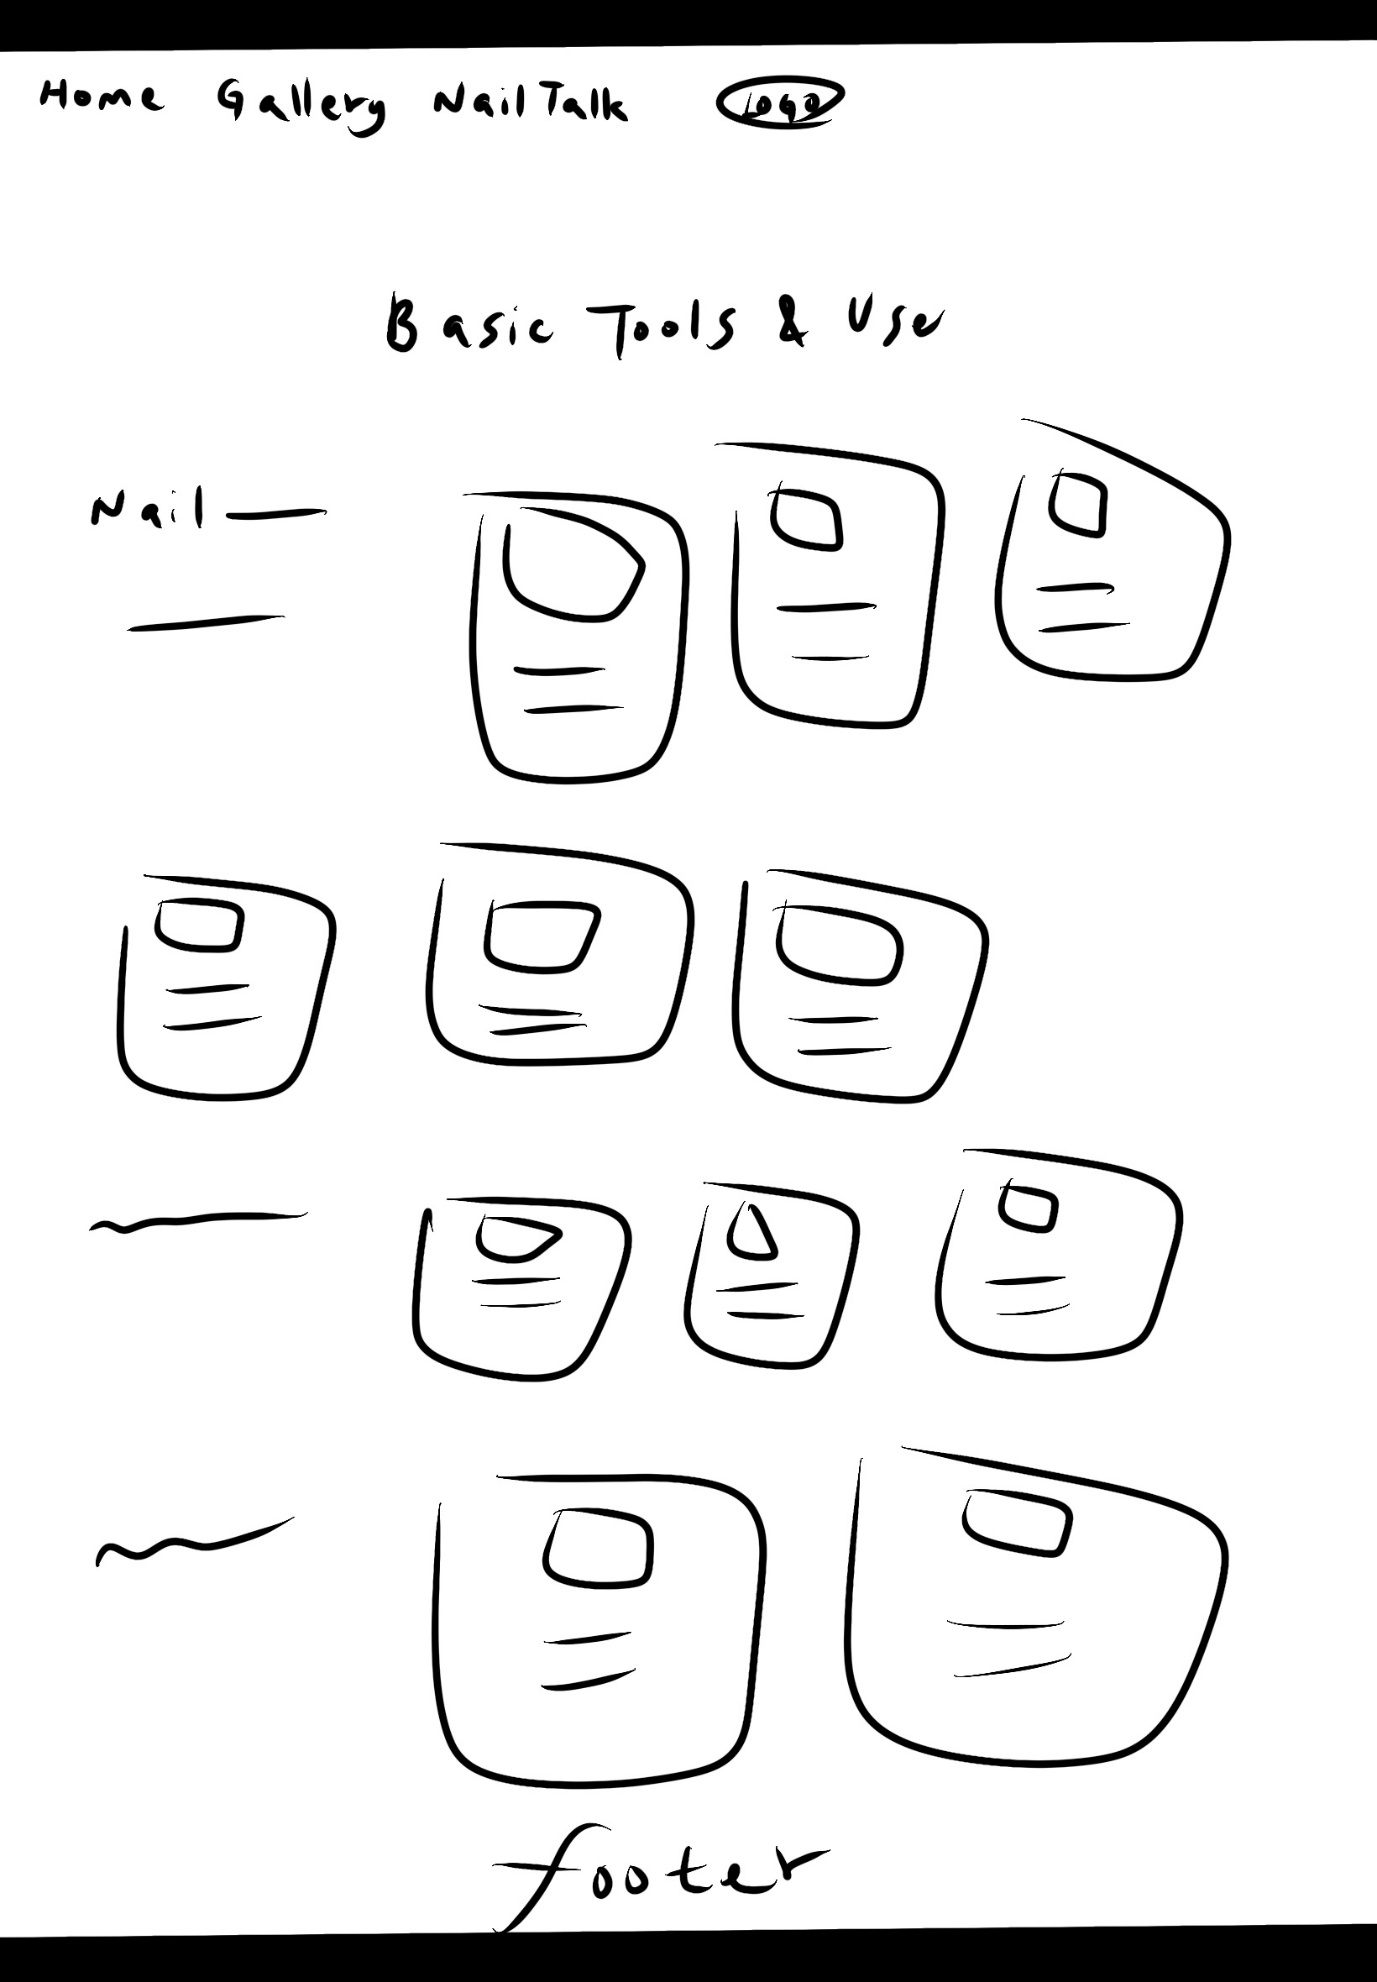 Home Gallery Nail Talk Logo
Basic Tools & Use
Nail
footer